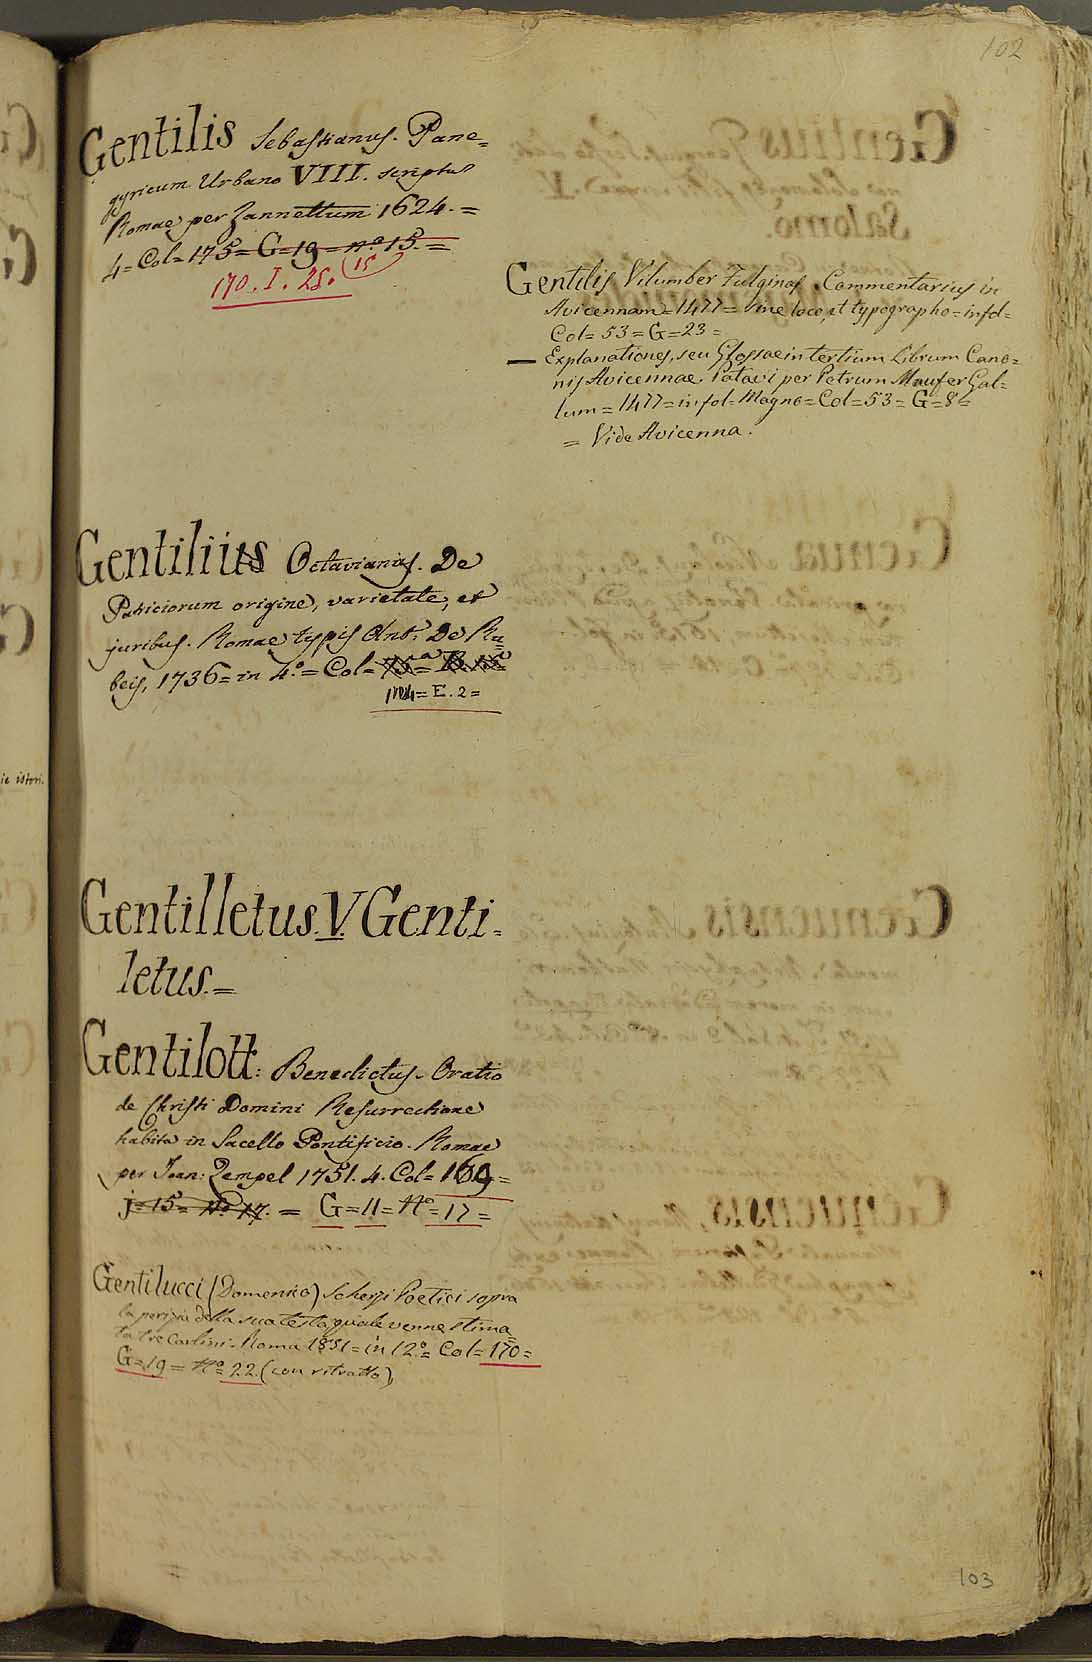 102
Gentilis Sebastianus. Pane=
gyricum Urbano VIII. scriptus
Romae per Zannettum 1624. =
4 = Col = 175 = G = 19 = n.º 15. =
170. I. 28. 15
Gentilis Vilumber Fulginas. Commentarius in
Avicennam = 1477 = Sine loco, et typographo = in fol =
Col = 53 = G = 23 =
— Explanationes, seu Glossae in tertium Librum Cano=
nis Avicennae. Patavi per Petrum Maufer Gal=
lum = 1477 = in fol = Magno = Col = 53 = G = 8 =
= Vide Avicenna.
Gentilius Octavianus. De
Patriciorum origine, varietate, et
juribus. Romae typis Ant: De Ru=
beis, 1736 = in 4.º = Col =
E. 2 =
Gentilletus. V. Genti=
letus. =
Gentilott: Benedictus. Oratio
de Christi Domini Resurrectione
habita in Sacello Pontificio. Romae
per Joan: Zempel 1751. 4. Col = 169 =
j = 15 = N.º 17. = G = 11 = Nº = 17 =
Gentilucci (Domenico) Scherzi Poetici sopra
la perizia della sua testa, quale venne stima=
ta tre Carlini = Roma 1851 = in 12.º = Col = 170 =
G = 19 = Nº = 22. (con ritratto)
ie istori.
103